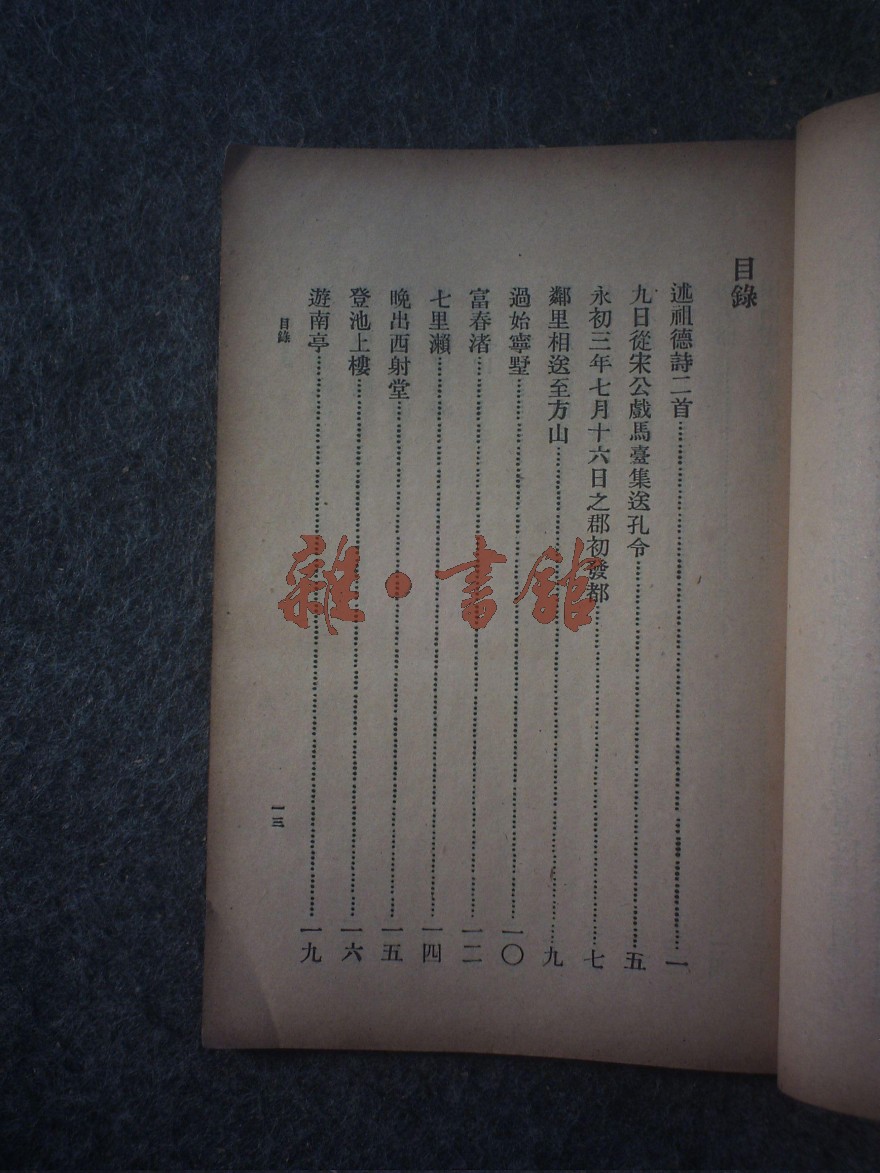 目錄
述祖德詩二首 一
九日從宋公戲馬臺集送孔令 五
永初三年七月十六日之郡初發都 七
鄰里相送至方山 九
過始寧墅 一〇
富春渚 一二
七里瀨 一四
晚出西射堂 一五
登池上樓 一六
遊南亭 一九
目錄
一三
雜·書館